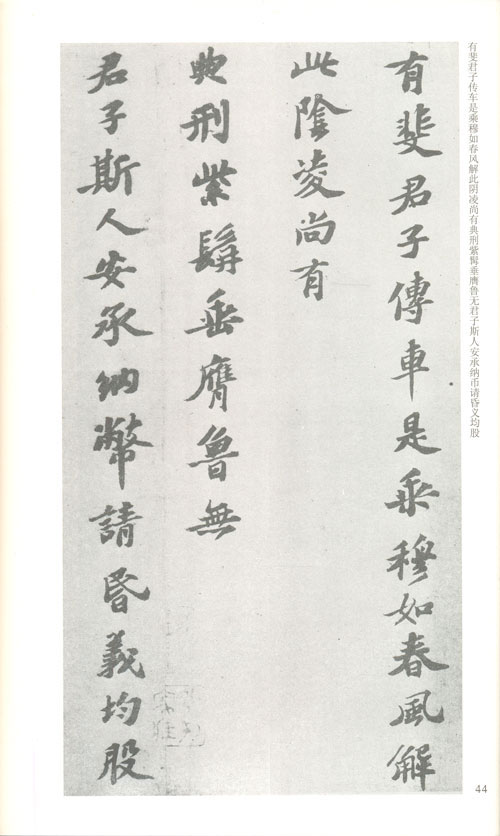 有斐君子传车是乘穆如春风解此阴凌尚有典刑紫髯垂膺鲁无君子斯人安承纳币请昏义均股
有斐君子傳車是乘穆如春風解
此陰凌尚有
典刑紫髯垂膺魯無
君子斯人安承納幣請昏義均股
44